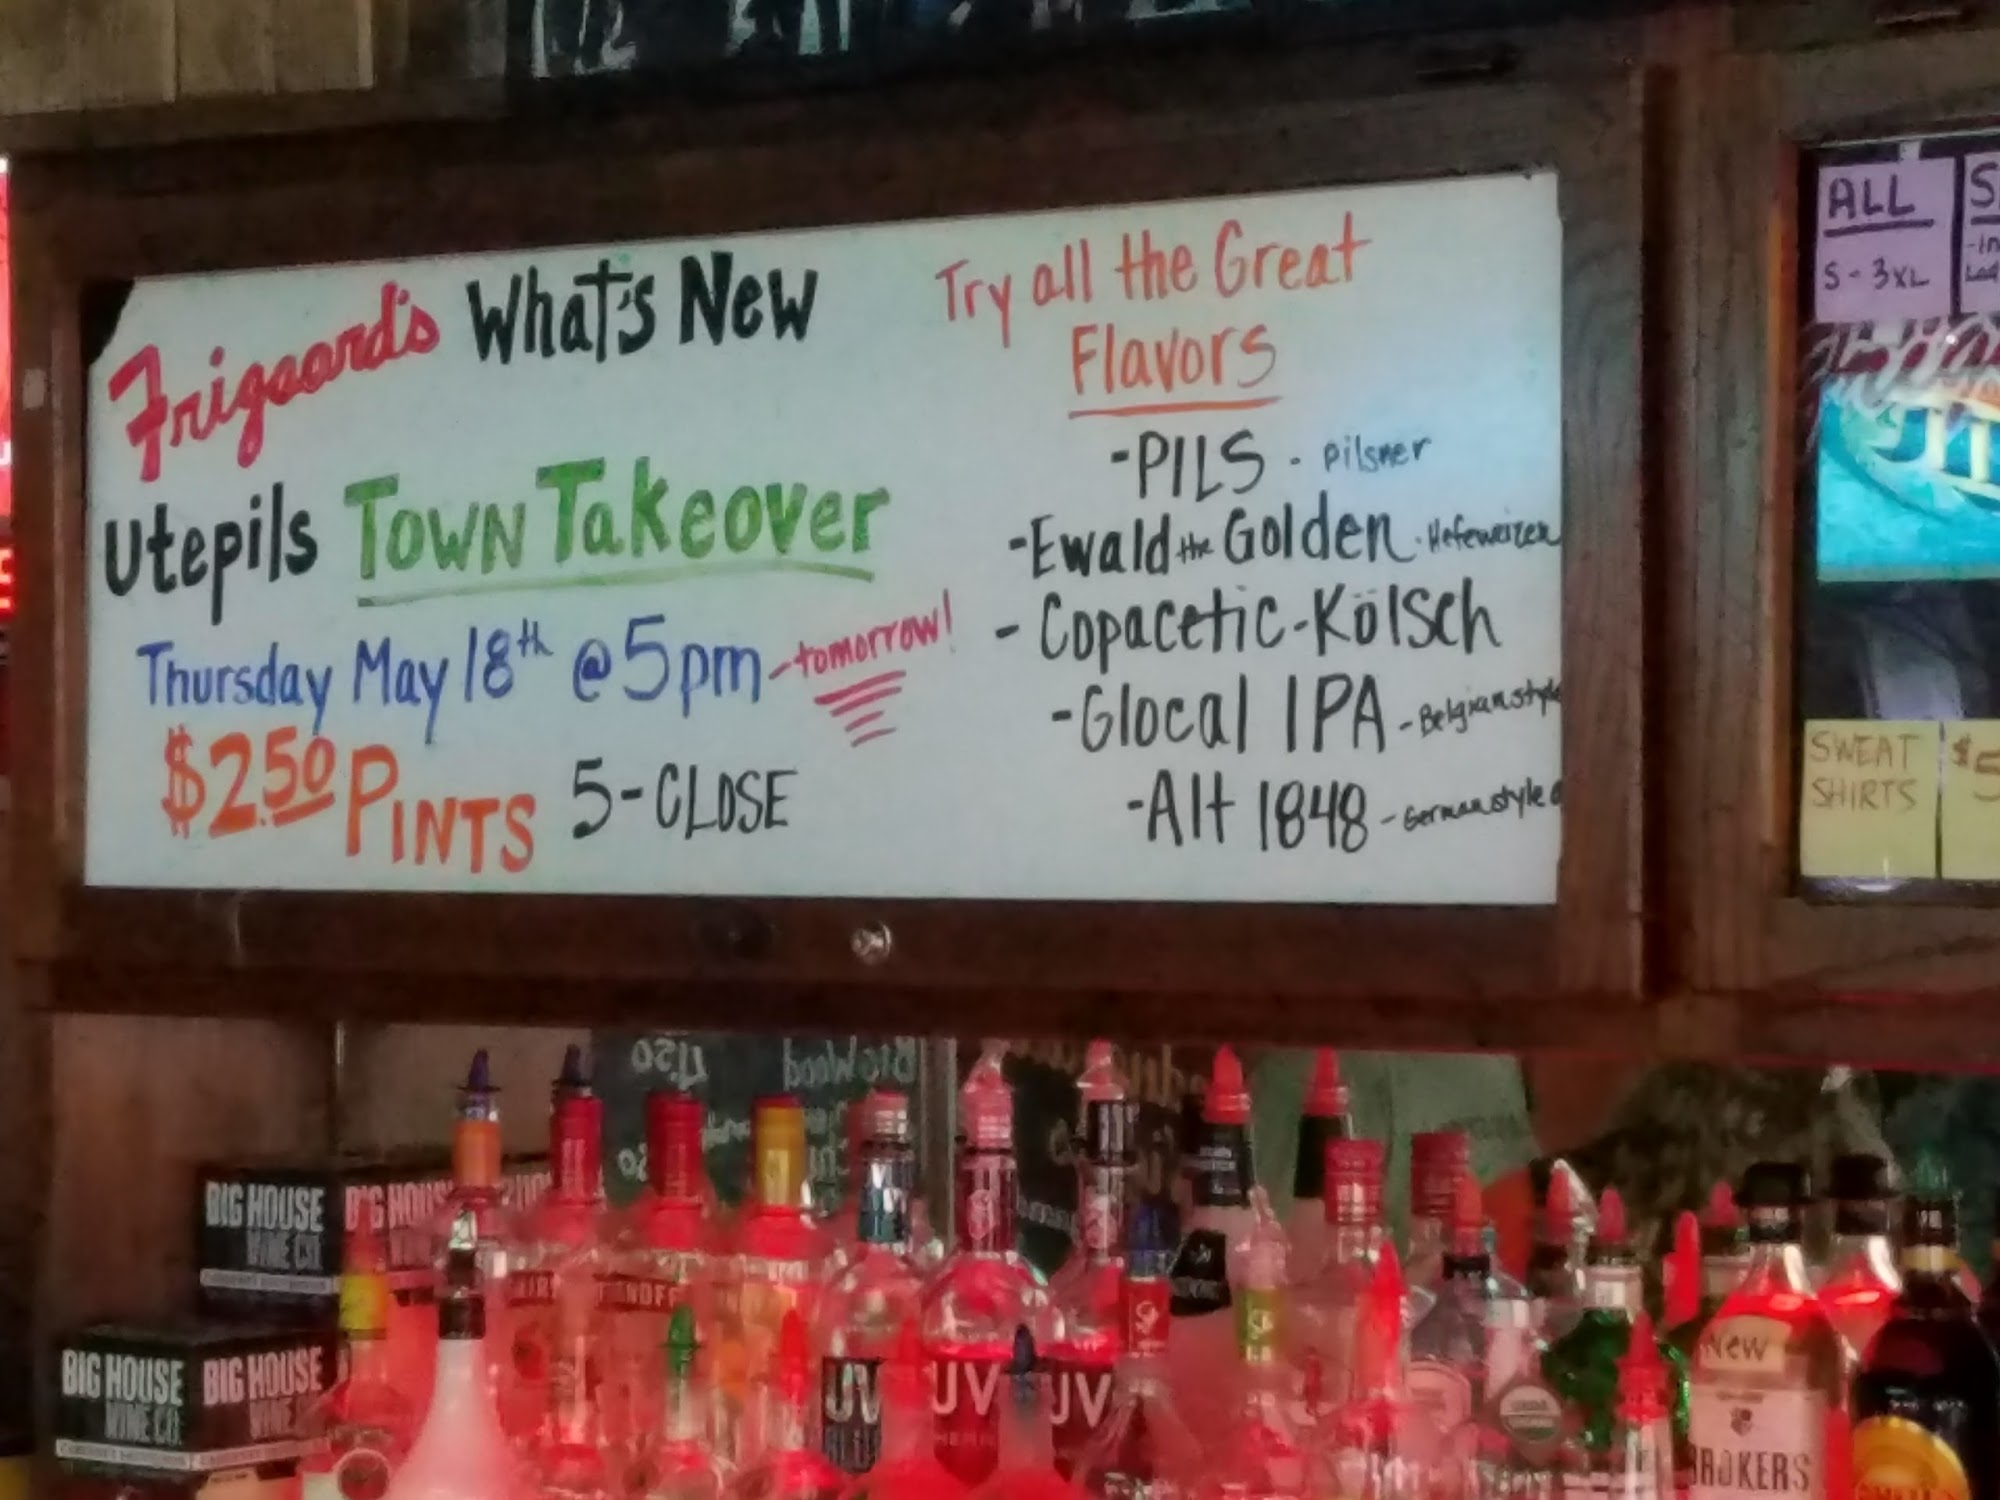 Frigaard's What's New
Utepils Town Takeover
Thursday May 18th @ 5pm - tomorrow!
$2.50 PINTS 5-CLOSE
Try all the Great
Flavors
-PILS - pilsner
-Ewald the Golden - Hefeweizen
- Copacetic-Kölsch
-Glocal IPA - Belgian style
-Alt 1848 - German style
ALL
S - 3XL
SWEAT
SHIRTS
$5
4.50
BIG HOUSE
WINE CO.
BIG HOUSE
WINE CO.
BIG HOUSE
UV
UV
UV
New
BROKERS